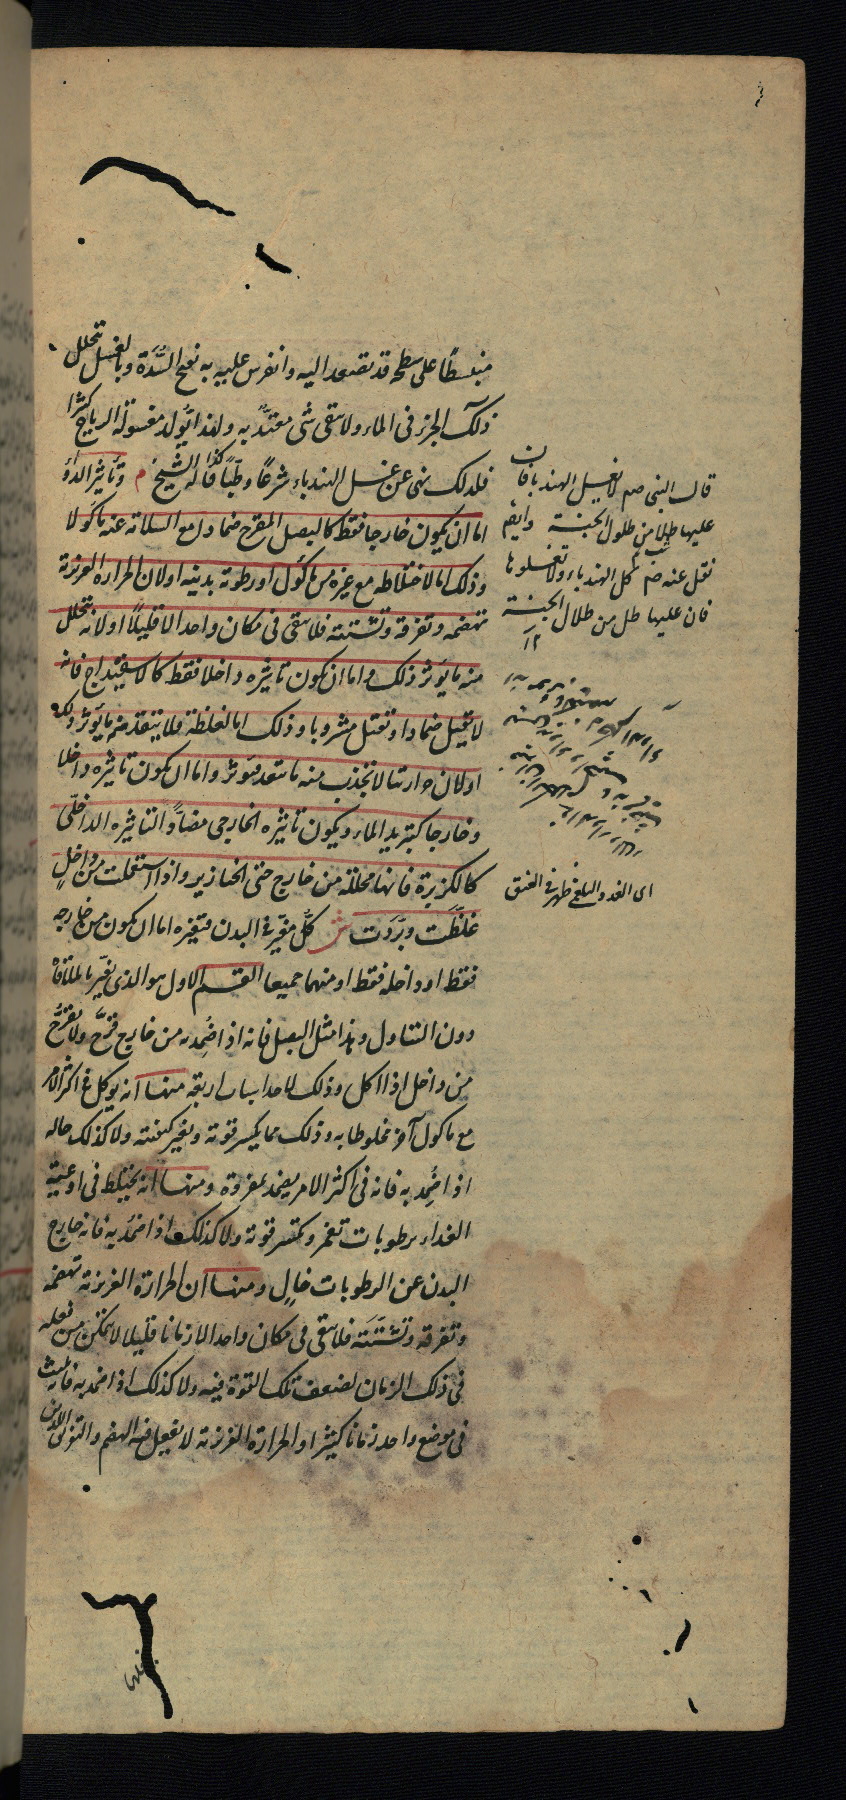 منبسطًا على سطحه قد تصعد اليه وانفرش عليه به تفتح السُّدة وبالغسل تتحلل
ذلك الجزء فى الماء ولا يبقى شى معتدٌّ به ولهذا تولد مغسولة الرياح كثيرا
فلذلك نهى عن غسل الهندباء شرعًا وطبًّا كذا قاله الشيخ م وتأثير الدواء
اما ان يكون خارجا فقط كالبصل المقرح ضمادا مع السلامة عنه ماكولا
وذلك اما لاختلاطه مع غيره من ماكول او رطوبة بدنية او لان الحرارة الغريزية
تهضمه وتفرقه وتشتته فلا يبقى فى مكان واحد الا قليلا او لانه يتحلل
منه ما يؤثر ذلك واما ان يكون تاثيره داخلا فقط كالاسفيداج فانه
لا يقتل ضمادا وتقتل مشروبا وذلك اما لغلظة فلا ينفذ منه ما يؤثر ذلك
او لان حرارتنا لا تجذب منه ما ينفذ فيؤثر واما ان يكون تاثيره داخلا
وخارجا كتبريد الماء ويكون تاثيره الخارجى مضادًّا لتاثيره الداخلى
كالكزبرة فانها محللة من خارج حتى الخنازير واذا استعملت من داخلٍ
غلّظت وبرّدت ش كلُّ مغيّر فى البدن فتغيره اما ان يكون من خارجه
فقط او داخله فقط او منهما جميعا القسم الاول هو الذى يغيّر بالملاقاة
دون التناول وهذا مثل البصل فانه اذا ضُمد به من خارج قرّح ولا يقرّح
من داخل اذا اكل وذلك لاحد اسباب اربعة منها انه يوكل فى اكثر الامر
مع ماكول آخر مخلوطا به وذلك مما يكسر قوته ويغير كيفيته ولا كذلك حاله
اذا ضُمد به فانه فى اكثر الامر يضمد بمفرده ومنها انه يختلط فى اوعية
الغذاء برطوبات تغمره وتكسر قوته ولا كذلك اذا ضمد به فانه خارج
البدن عن الرطوبات خالٍ ومنها ان الحرارة الغريزية تهضمه
وتفرقه وتشتّته فلا يبقى فى مكان واحد الا زمانا قليلا لا يتمكن من فعله
فى ذلك الزمان لضعف تلك القوة فيه ولا كذلك اذا ضمد به فانه يلبث
فى موضع واحد زمانا كثيرا والحرارة الغريزية لا تفعل فيه الهضم والتفريق اللذين
قال النبى صم لا تغسل الهندبا فان
عليها طلا من طلول الجنة وايضم
نقل عنه صم كل الهندباء ولا تغسلوها
فان عليها طل من طلال الجنة
١٢
اى الغدد البلغمى ظهر فى العنق